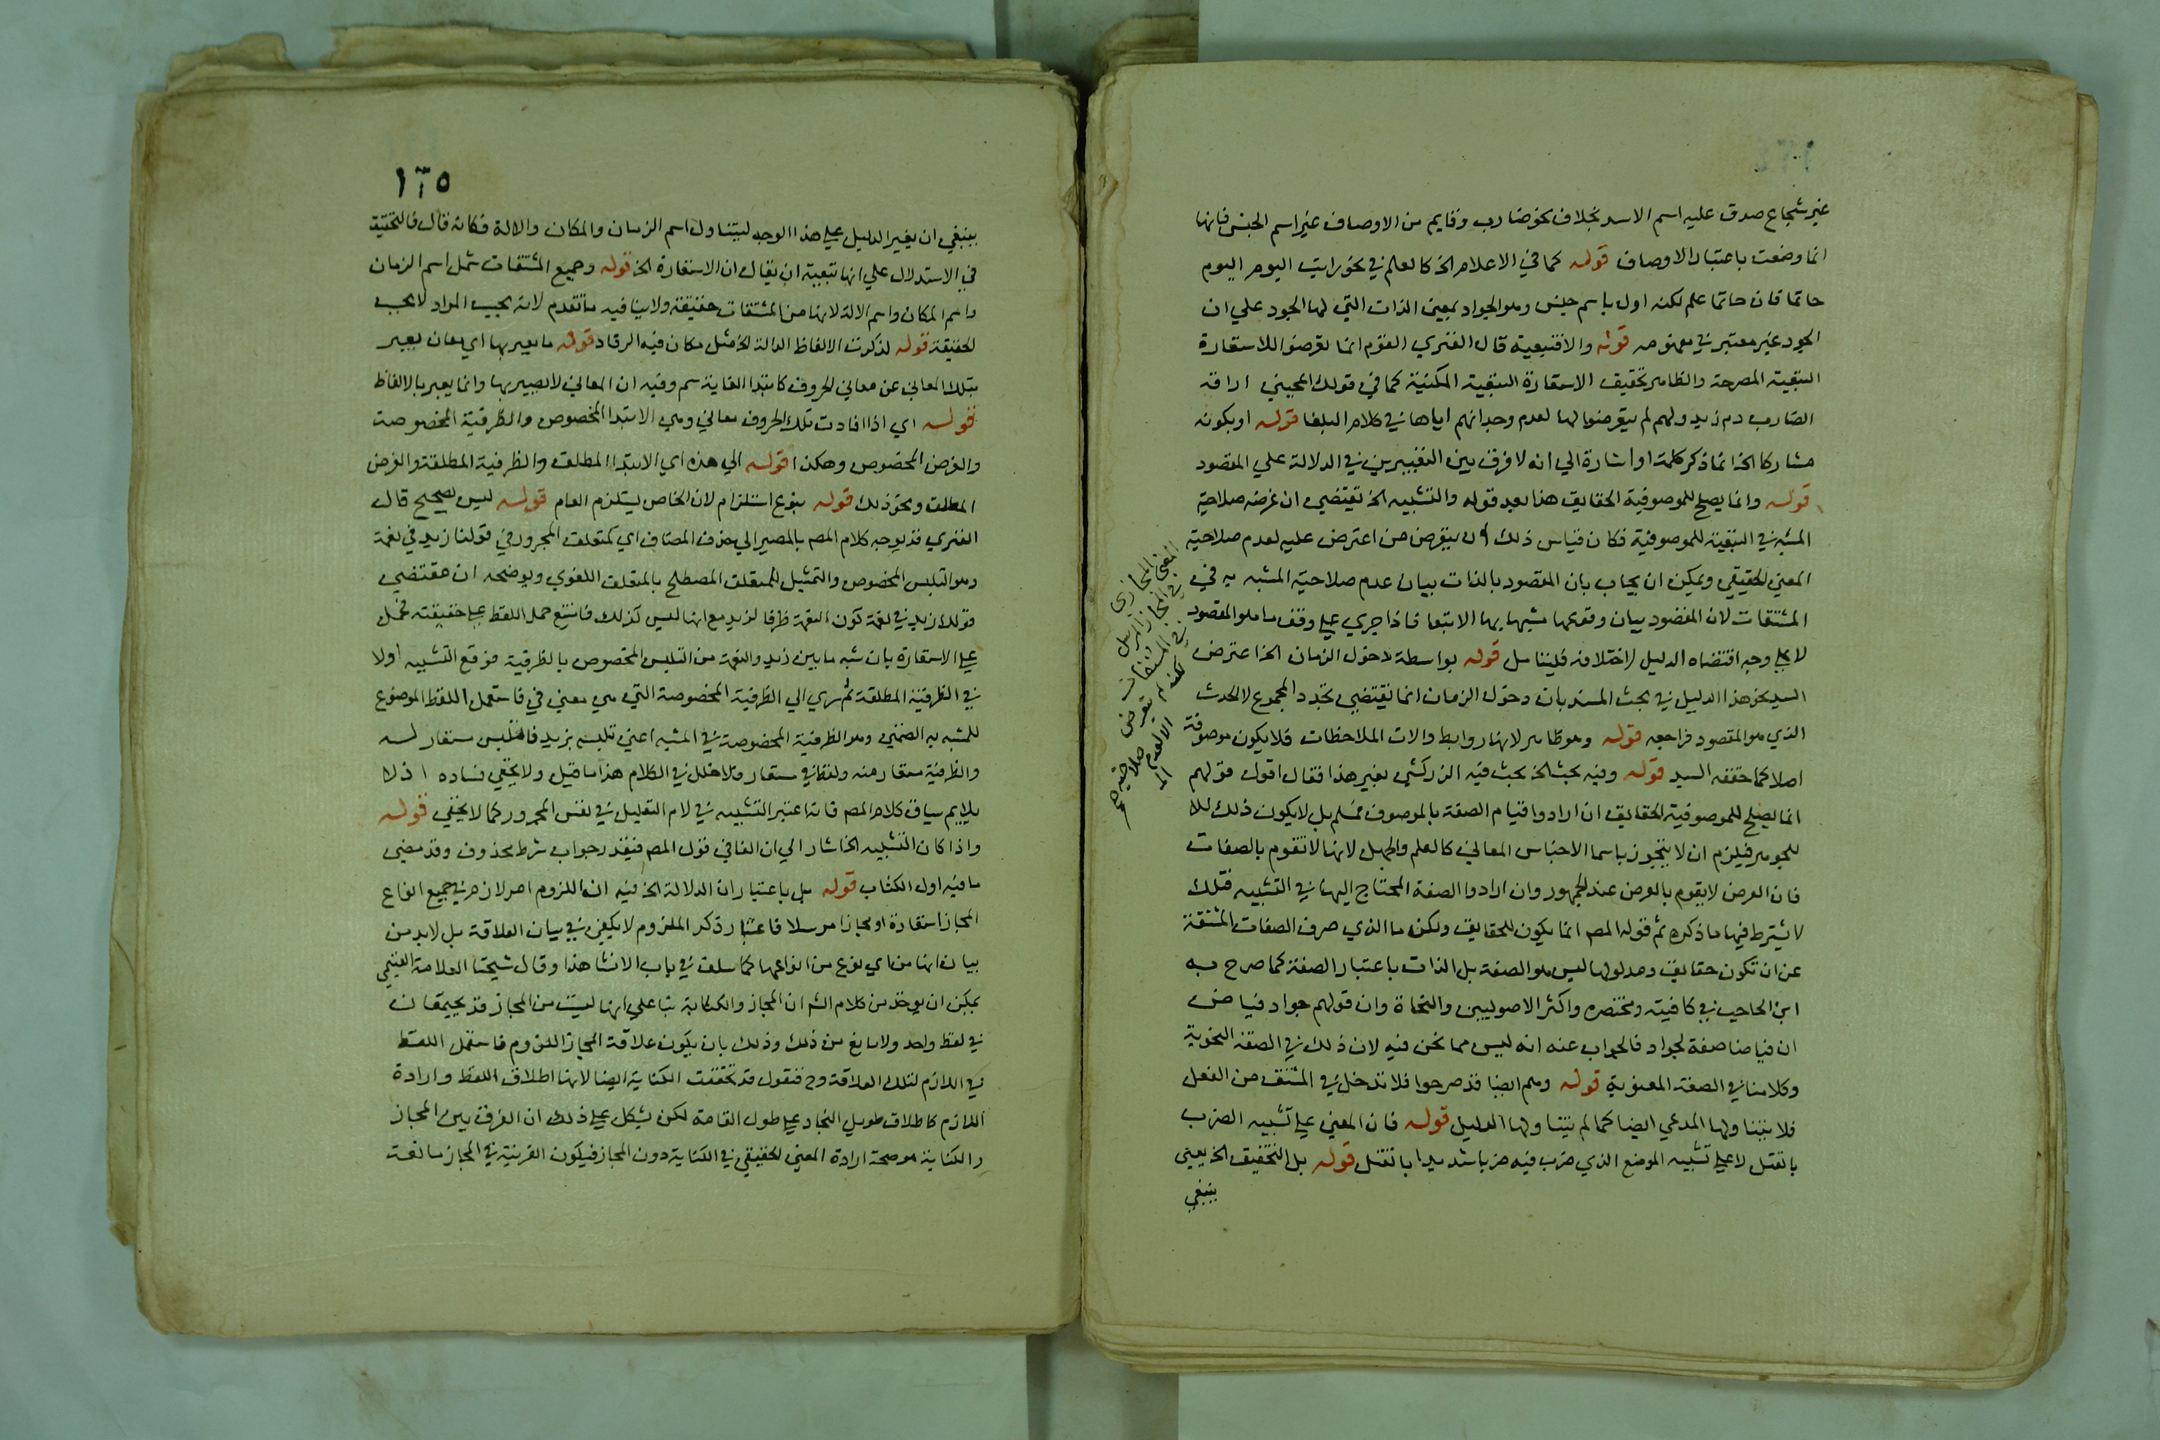 غير شجاع صدق عليه اسم الاسد بخلاف نحو ضارب وقايم من الاوصاف غير اسم الجنس فانها
انما وضعت باعتبار الاوصاف قوله كما في الاعلام الخ كالعلم في نحو رايت اليوم اليوم
حاتما فان حاتما علم لكنه اول باسم جنس وهو الجواد بمعنى الذات التي لها الجود علي ان
الجود غير معتبر في مفهومه قوله والا فتبعية قال الفنري القوم انما تعرضوا للاستعارة
التبعية المصرحة والظاهر تحقيق الاستعارة التبعية المكنية كما في قولك اعجبني اراقة
الضارب دم زيد ولهم لم يتعرضوا لها لعدم وجدانهم اياها في كلام البلغا قوله او بكونه
مشاركا الخ انما ذكر كلمة او اشارة الي انه لا فرق بين التعبيرين في الدلالة علي المقصود
قوله وانما يصلح للموصوفية الحقايق هذا بعد قوله والتشبيه الخ تقتضي ان غرضه صلاحية
المشبه في التبعية للموصوفية فكان قياس ذلك ان يتعرض من اعترض عليه لعدم صلاحية
المعني الحقيقي ويمكن ان يجاب بان المقصود بالذات بيان عدم صلاحية المشبه به في
المشتقات لان المقصود بيان وقوعها مشبها بها الا تبعا فاذا جري علي وفق ما هو المقصود
لا علي وجه اقتضاه الدليل لاختلافه فليتامل قوله بواسطة دخول الزمان الخ اعترض
السيد نحو هذا الدليل في بحث المسند بان دخول الزمان انما تقتضي تجدد المجموع لا الحدث
الذي هو المقصود فراجعه قوله وهو ظاهر لانها روابط والات الملاحظات فلا يكون موصوفة
اصلا كما حققه السيد قوله وفيه بحث الخ بحث فيه الزركشي بغير هذا فقال اقول قولهم
انما يصلح للموصوفية الحقايق ان ارادوا قيام الصفة بالموصوف فمسلم بل لا يكون ذلك الا
للجوهر فيلزم ان لا يتجوز باسما الاجناس المعاني كالعلم والجهل لانها لا تقوم بالصفات
فان العرض لا يقوم بالعرض عند الجمهور وان ارادوا الصفة المحتاج اليها في التشبيه فتلك
لا يشترط فيها ما ذكره ثم قوله المص انما يكون للحقايق ولكن ما الذي صرف الصفات المشتقة
عن ان تكون حقايق ومدلولها ليس هو الصفة بل الذات باعتبار الصفة كما صرح به
ابن الحاجب في كافيته ومختصره واكثر الاصوليين والنحاة وان قولهم جواد فياض
ان فياضا صفة لجواد فالجواب عنه انه ليس مما نحن فيه لان ذلك في الصفة النحوية
وكلامنا في الصفة المعنوية قوله وهم ايضا قد صرحوا فلا تدخل في المشتق من الفعل
فلا يتناولها المدعي ايضا كما لم يتناولها الدليل قوله فان المعني علي تشبيه الضرب
بالقتل لا علي تشبيه الموضع الذي ضرب فيه ضربا شديدا بالقتل قوله بل التحقيق الخ يعني
ينبغي
المعني المجازي
في المجاز المرسل
في المشتقات
لكنه لم يتعرض
الا لعدم صلاحية
١٣٥
ينبغي ان يغير الدليل علي هذا الوجه ليتناول اسم الزمان والمكان والالة فكانه قال فالتحقيق
في الاستدلال علي انها تبعية ان يقال ان الاستعارة الخ قوله وجميع المشتقات شمل اسم الزمان
واسم المكان واسم الالة لانها من المشتقات حقيقة ولا ينافيه ما تقدم لانه بحسب المراد لا بحسب
الحقيقة قوله لذكرت الالفاظ الدالة الخ مثل مكان فيه الرقاد قوله ما يعبر بها اي معان يعبر
بتلك المعاني عن معاني الحروف كابتدا الغاية سم وفيه ان المعاني لا يعبر بها وانما يعبر بالالفاظ
قوله اي اذا افادت تلك الحروف معاني وهي الابتدا المخصوص والظرفية المخصوصة
والغرض المخصوص وهكذا قوله الي هذه اي الابتدا المطلق والظرفية المطلقة والغرض
المطلق ونحو ذلك قوله بنوع استلزام لان الخاص يستلزم العام قوله ليس بصحيح قال
الفنري قد يوجه كلام المص بالمصير الي حذف المضاف اي كمتعلق المجرور في قولنا زيد في نعمة
وهو التلبس المخصوص والتمثيل للمتعلق المصطلح بالمتعلق اللغوي ويوضحه ان مقتضي
قولك زيد في نعمة كون النعمة ظرفا لزيد مع انها ليس كذلك فامتنع حمل اللفظ علي حقيقته فحمل
علي الاستعارة بان شبه ما بين زيد والنعمة من التلبس المخصوص بالظرفية فوقع التشبيه اولا
في الظرفية المطلقة ثم سري الي الظرفية المخصوصة التي هي معني في فاستعمل اللفظ الموضوع
للمشبه به الضمني وهو الظرفية المخصوصة في المشبه اعني تلبسه بزيد فالتلبس مستعار له
والظرفية مستعار منه ولفظ في مستعار فلا خلل في الكلام هذا ما قيل ولا يخفي فساده اذ لا
يلايم سياق كلام المص فانه اعتبر التشبيه في لام التعليل في نفس المجرور كما لا يخفي قوله
واذا كان التشبيه الخ اشار الي ان الفا في قول المص فيقدر جواب شرط محذوف وقد مضي
ما فيه اول الكتاب قوله بل باعتبار ان الدلالة الخ فيه ان اللزوم امر لازم في جميع انواع
المجاز استعارة او مجازا مرسلا فاعتبار ذكر الملزوم لا يكفي في بيان العلاقة بل لا بد من
بيان انها من اي نوع من انواعها كما سلف في باب الانشا هذا وقال شيخنا العلامة الغنيمي
يمكن ان يوخذ من كلام الش ان المجاز والكناية بنا علي انها ليست من المجاز قد يجتمعان
في لفظ واحد ولا مانع من ذلك وذلك بان يكون علاقة المجاز اللزوم فاستعمل اللفظ
في اللازم لتلك العلاقة وح فنقول قد تحققت الكناية ايضا لانها اطلاق اللفظ وارادة
اللازم كاطلاق طويل النجاد علي طول القامة لكن يشكل علي ذلك ان الفرق بين المجاز
والكناية هو صحة ارادة المعني الحقيقي في الكناية دون المجاز فيكون القرينة في المجاز مانعة